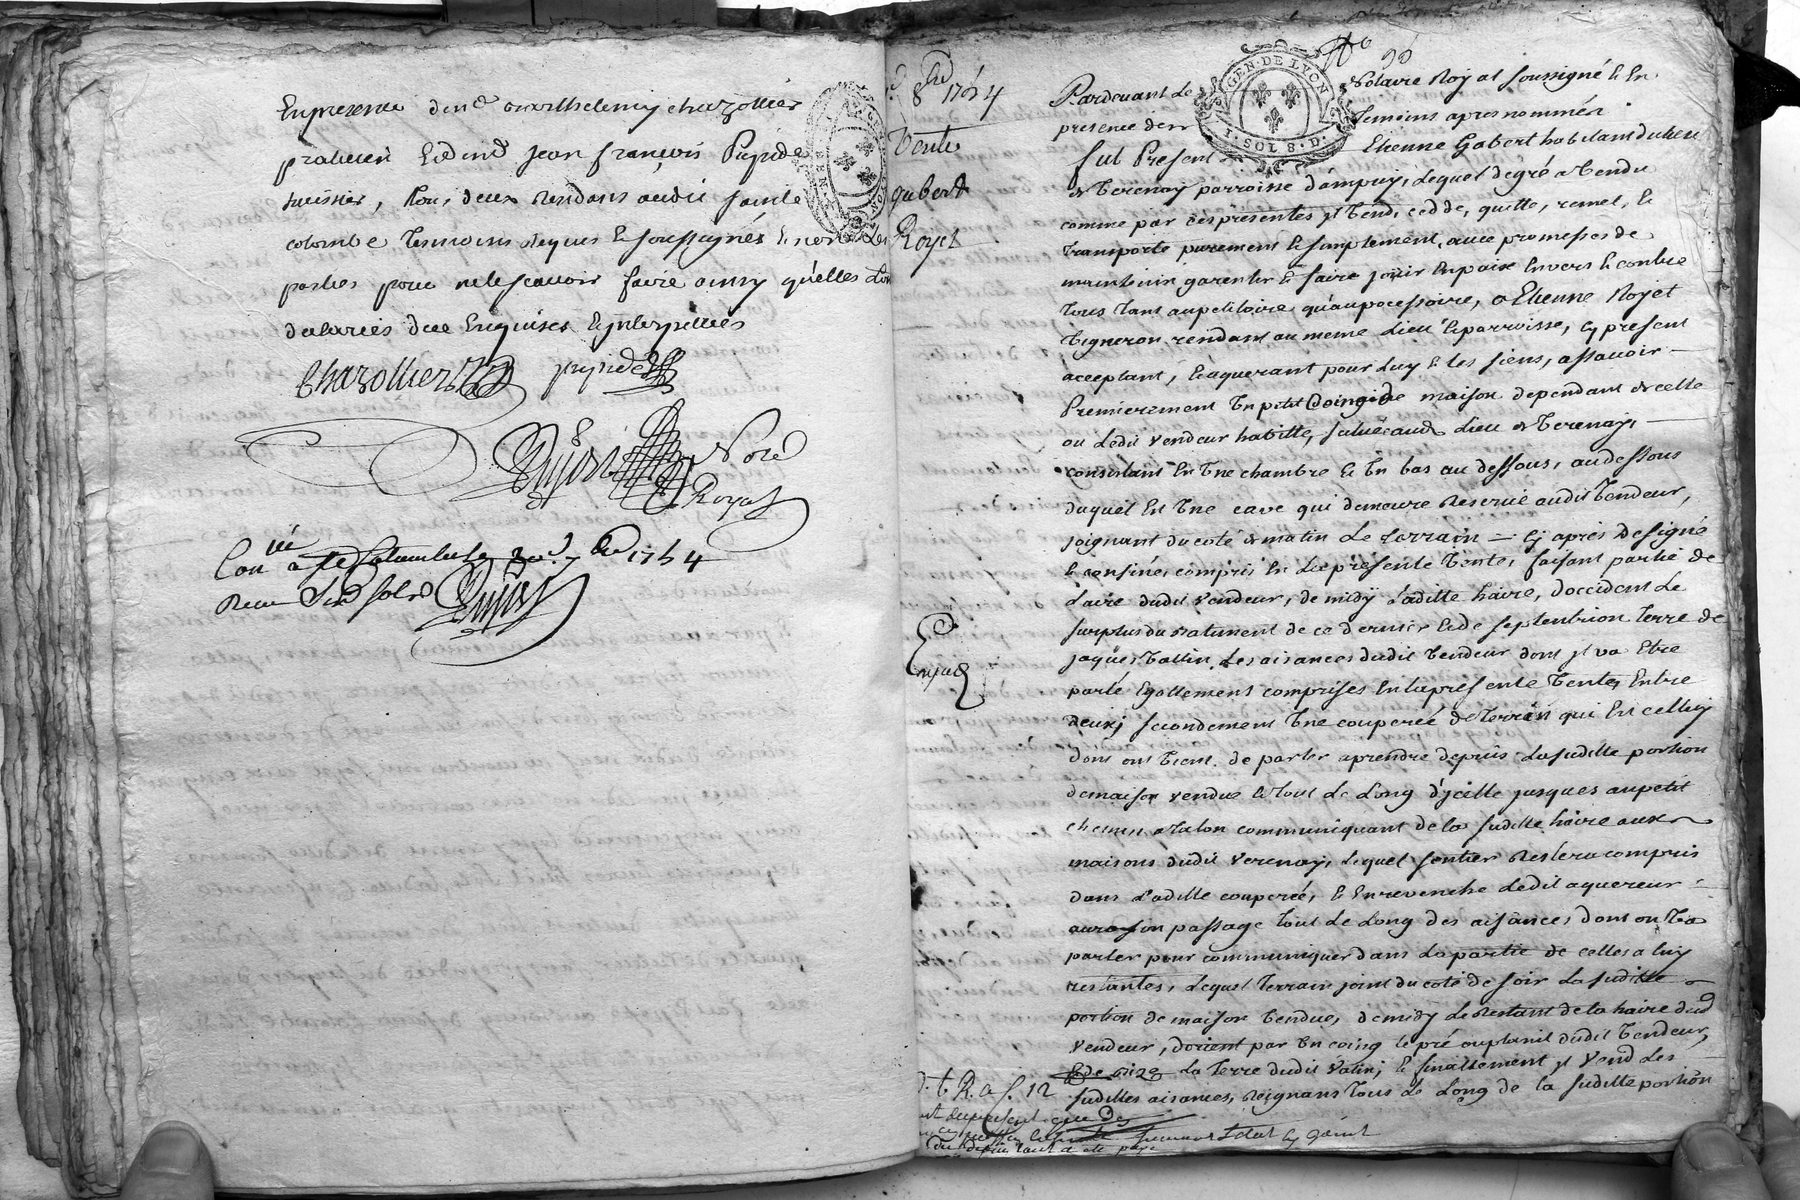 En presence de m.e Barthelemy chazollier
praticien Et de m.e Jean françois Pipide
huissier, tous deux Residans audit sainte
colombe temoins Requis & soussignés & non Les
parties pour ne le scavoir faire ainsy quelles L'on
declarées de ce Enquises & ynterpellées
Chazollier
pipide
Dujast No.re Royal
Con.lé a S.te Colombe Le 7.bre 1754
Receu sols Dujast
GEN · DE LYON
I · SOL 8 · D ·
8.bre 1754
Vente
gabert
Royet
Expéd.
Pardevant Le Notaire Royal soussigné & En
presence des Temoins apres nommés
fut Present Etienne Gabert habitant du lieu
de Verenay parroisse d'ampuy, Lequel de gré a Vendu
comme par ces presentes yl Vend, cedde, quitte, remet, &
transporte purement & simplement, avec promesses de
maintenir garentir & faire jouir En paix Envers & contre
tous tant au petitoire qu'au pocessoire, a Etienne Royet
Vigneron residant au meme Lieu & parroisse, cy present
acceptant, & aquerant pour Luy & les siens, assavoir
Premierement Un petit Coing de maison dependant de celle
ou Ledit Vendeur habitte, scituée aud. Lieu de Verenay,
consistant En Une chambre & Un bas au dessous, au dessous
duquel Est Une cave qui demeure Reservé audit Vendeur,
joignant du coté de matin Le terrain cy après designé
& confiné, compris En La présente Vente, faisant partie de
L'aire dudit Vendeur, de midy Laditte haire, d'occident Le
surplus du Batiment de ce dernier & de septentrion terre de
jaques Vallin, Les aisances dudit Vendeur dont yl va Etre
parlé Egallement comprises En la présente Vente, Entre
deux; secondement Une couperée de terrein qui Est celluy
dont on Vient de parler a prendre depuis Laditte portion
de maison vendue & tout Le Long d'ycelle jusques au petit
chemin a talon communiquant de la suditte haire aux
maisons dudit Verenay, Lequel sentier Restera compris
dans Laditte couperée, & En revenche Ledit aquereur
aura son passage tout Le Long des aisances dont on Va
parler pour communiquer dans La partie de celles a luy
restantes, Lequel terrain joint du coté de soir La suditte
portion de maison Vendue, de midy Le Restant de la haire dud.
Vendeur, d'orient par Un coing Le pré ou planit dudit Vendeur,
& de bize La terre dudit Valin; & finallement yl Vend Les
suddittes aisances, Reignans tous Le Long de la suditte portion